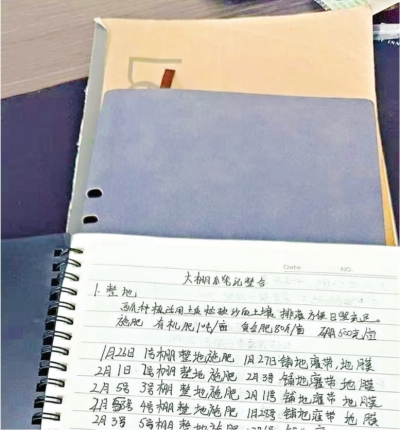 Date. NO.
大棚瓜笔记整合
1. 整地
西瓜种植选用土质松疏沙白土壤 排落方便日照充足。
施肥 有机肥1吨/亩 复合肥80斤/亩 500元/亩
1月26日 1号棚整地施肥 1月27铺地滴带,地膜
2月1日 2号棚整地施肥 2月3号铺地滴带 地膜
2月5号 3号棚整地施肥 2月1号铺地滴带 地膜
4号棚整地施肥 1月28号铺地滴带 地膜
2月3号 5号棚整地施肥